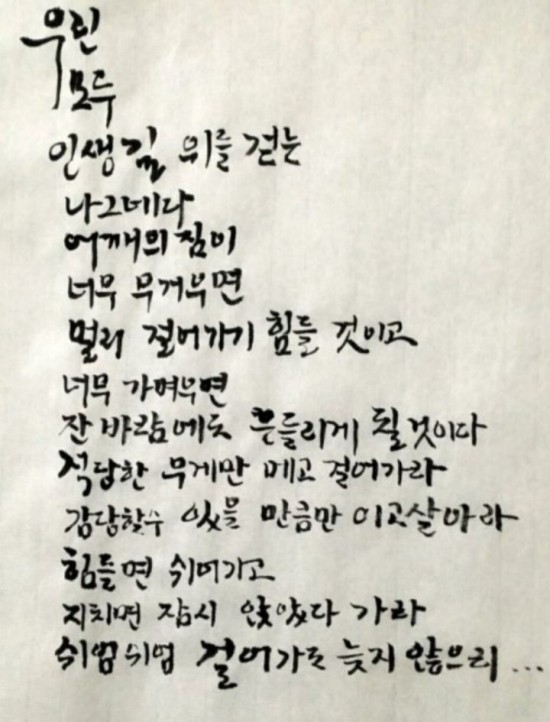 우린
모두
인생길 위를 걷는
나그네다
어깨의 짐이
너무 무거우면
멀리 걸어가기 힘들 것이고
너무 가벼우면
잔 바람에도 흔들리게 될것이다
적당한 무게만 메고 걸어가라
감당할수 있을 만큼만 이고살아라
힘들면 쉬어가고
지치면 잠시 앉았다 가라
쉬엄쉬엄 걸어가도 늦지 않으리 ...